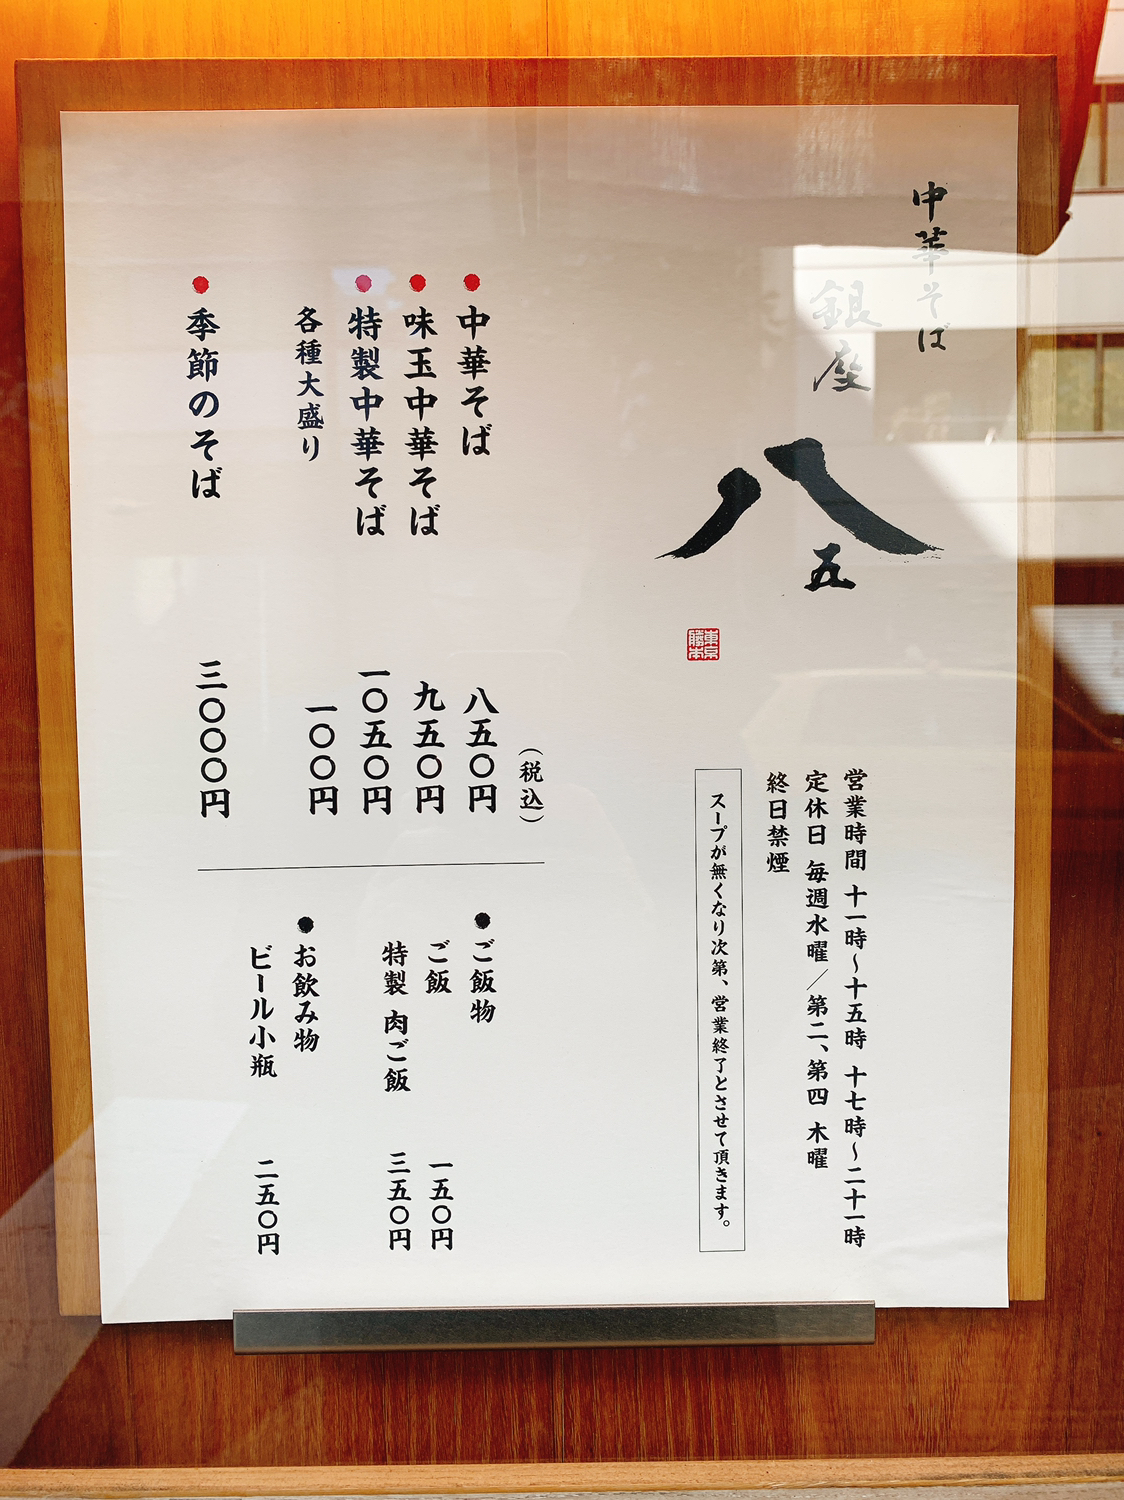 中華そば
銀座
八五
東京
勝本
営業時間 十一時〜十五時 十七時〜二十一時
定休日 毎週水曜／第二、第四 木曜
終日禁煙
スープが無くなり次第、営業終了とさせて頂きます。
（税込）
●中華そば 八五〇円
●味玉中華そば 九五〇円
●特製中華そば 一〇五〇円
各種大盛り 一〇〇円
●季節のそば 三〇〇〇円
●ご飯物
ご飯 一五〇円
特製 肉ご飯 三五〇円
●お飲み物
ビール小瓶 二五〇円